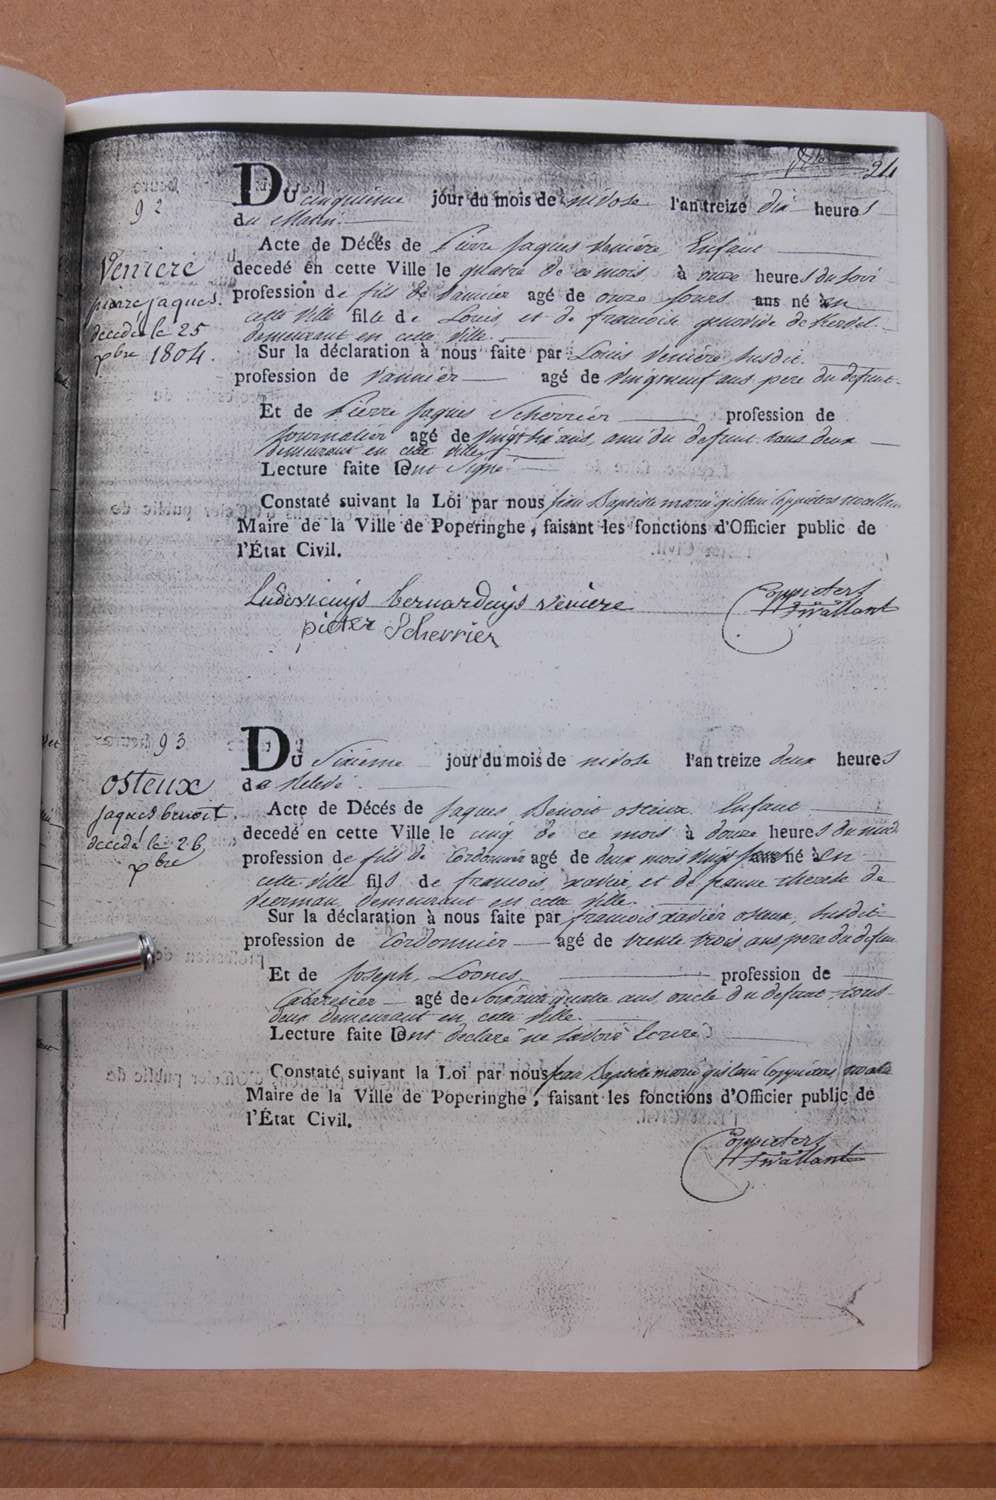 24
92
Du cinquième jour du mois de nivose l'an treize dix heures
du Matin
Acte de Décés de Pierre Jaques Veniere, Enfant
Veniere
decedé en cette Ville le quatre de ce mois à onze heures du soir
pierre jaques.
profession de fils de Vannier agé de onze jours ans né en
decedé le 25
cette ville fils de Louis, et de francoise genovive de
xbre 1804.
demeurant en cette ville.
Sur la déclaration à nous faite par Louis Veniere susdit
profession de Vannier agé de Vingtneuf ans pere du defunt
Et de Pierre Jaques Scherrier profession de
journalier agé de Vingt six ans, ami du defunt tous deux
demeurant en cette ville
Lecture faite ont Signé
Constaté suivant la Loi par nous Jean Baptiste marie gislain Coppieters
Maire de la Ville de Poperinghe, faisant les fonctions d'Officier public de
l'État Civil.
Ludovicuijs bernarduijs veniere
pieter Scherrier
Coppieters
93
Du Sixieme jour du mois de nivose l'an treize deux heures
de Relevé
osteux
Acte de Décés de Jaques Benoit osteux Enfant
jaques benoit.
decedé en cette Ville le cinq de ce mois à douze heures du midi
decedé le 26
profession de fils de Cordonnier agé de deux mois vingt né en
xbre
cette ville fils de francois xavier, et de jeanne therese de
demeurant en cette ville.
Sur la déclaration à nous faite par francois xavier osteux, susdit
profession de Cordonnier agé de trente trois ans pere du defunt
Et de Joseph Loones profession de
Cabaretier agé de Soixante quatre ans, oncle du defunt, tous
deux demeurant en cette ville.
Lecture faite ont declaré ne savoir Ecrire
Constaté suivant la Loi par nous Jean Baptiste marie gislain Coppieters
Maire de la Ville de Poperinghe, faisant les fonctions d'Officier public de
l'État Civil.
Coppieters